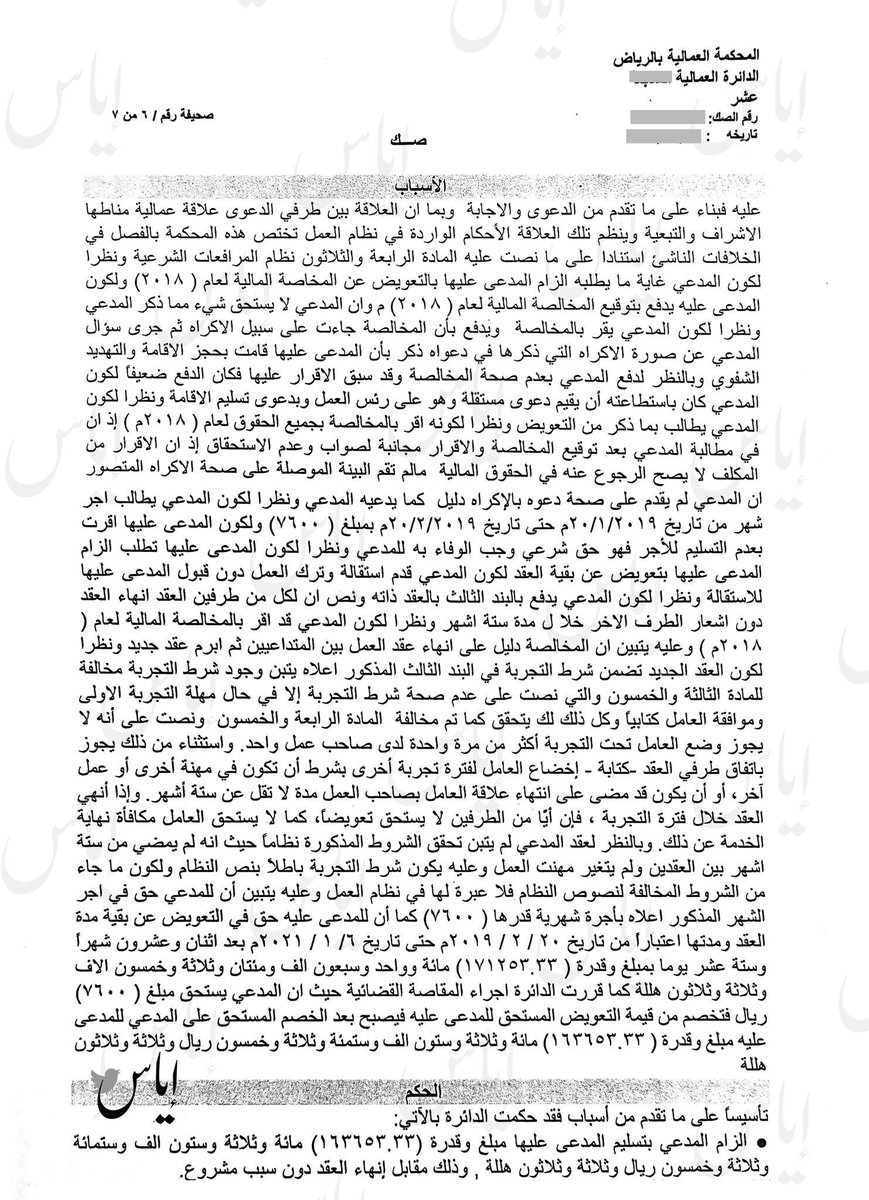 المحكمة العمالية بالرياض
الدائرة العمالية
عشر
رقم الصك:
تاريخه :
صحيفة رقم / ٦ من ٧
صــك
الأسباب
عليه فبناء على ما تقدم من الدعوى والاجابة وبما ان العلاقة بين طرفي الدعوى علاقة عمالية مناطها
الاشراف والتبعية وينظم تلك العلاقة الأحكام الواردة في نظام العمل تختص هذه المحكمة بالفصل في
الخلافات الناشئ استنادا على ما نصت عليه المادة الرابعة والثلاثون نظام المرافعات الشرعية ونظرا
لكون المدعي غاية ما يطلبه الزام المدعى عليها بالتعويض عن المخاصة المالية لعام ( ٢٠١٨ ) ولكون
المدعى عليه يدفع بتوقيع المخالصة المالية لعام ( ٢٠١٨ ) م وان المدعي لا يستحق شيء مما ذكر المدعي
ونظرا لكون المدعي يقر بالمخالصة ويدفع بأن المخالصة جاءت على سبيل الاكراه ثم جرى سؤال
المدعي عن صورة الاكراه التي ذكرها في دعواه ذكر بأن المدعى عليها قامت بحجز الاقامة والتهديد
الشفوي وبالنظر لدفع المدعي بعدم صحة المخالصة وقد سبق الاقرار عليها فكان الدفع ضعيفاً لكون
المدعي كان باستطاعته أن يقيم دعوى مستقلة وهو على رئس العمل وبدعوى تسليم الاقامة ونظرا لكون
المدعي يطالب بما ذكر من التعويض ونظرا لكونه اقر بالمخالصة بجميع الحقوق لعام ( ٢٠١٨م ) إذ ان
في مطالبة المدعي بعد توقيع المخالصة والاقرار مجانبة لصواب وعدم الاستحقاق إذ ان الاقرار من
المكلف لا يصح الرجوع عنه في الحقوق المالية مالم تقم البينة الموصلة على صحة الاكراه المتصور
ان المدعي لم يقدم على صحة دعوه بالإكراه دليل كما يدعيه المدعي ونظرا لكون المدعي يطالب اجر
شهر من تاريخ ٢٠/١/٢٠١٩م حتى تاريخ ٢٠/٢/٢٠١٩م بمبلغ (٧٦٠٠) ولكون المدعى عليها اقرت
بعدم التسليم للأجر فهو حق شرعي وجب الوفاء به للمدعي ونظرا لكون المدعى عليها تطلب الزام
المدعى عليها بتعويض عن بقية العقد لكون المدعي قدم استقالة وترك العمل دون قبول المدعى عليها
للاستقالة ونظرا لكون المدعي يدفع بالبند الثالث بالعقد ذاته ونص ان لكل من طرفين العقد انهاء العقد
دون اشعار الطرف الاخر خلا ل مدة ستة اشهر ونظرا لكون المدعي قد اقر بالمخالصة المالية لعام (
٢٠١٨م ) وعليه يتبين ان المخالصة دليل على انهاء عقد العمل بين المتداعيين ثم ابرم عقد جديد ونظرا
لكون العقد الجديد تضمن شرط التجربة في البند الثالث المذكور اعلاه يتبن وجود شرط التجربة مخالفة
للمادة الثالثة والخمسون والتي نصت على عدم صحة شرط التجربة إلا في حال مهلة التجربة الاولى
وموافقة العامل كتابياً وكل ذلك لك يتحقق كما تم مخالفة المادة الرابعة والخمسون ونصت على أنه لا
يجوز وضع العامل تحت التجربة أكثر من مرة واحدة لدى صاحب عمل واحد. واستثناء من ذلك يجوز
باتفاق طرفي العقد -كتابة - إخضاع العامل لفترة تجربة أخرى بشرط أن تكون في مهنة أخرى أو عمل
آخر، أو أن يكون قد مضى على انتهاء علاقة العامل بصاحب العمل مدة لا تقل عن ستة أشهر. وإذا أنهي
العقد خلال فترة التجربة ، فإن أيًّا من الطرفين لا يستحق تعويضاً، كما لا يستحق العامل مكافأة نهاية
الخدمة عن ذلك. وبالنظر لعقد المدعي لم يتبن تحقق الشروط المذكورة نظاماً حيث انه لم يمضي من ستة
اشهر بين العقدين ولم يتغير مهنت العمل وعليه يكون شرط التجربة باطلاً بنص النظام ولكون ما جاء
من الشروط المخالفة لنصوص النظام فلا عبرة لها في نظام العمل وعليه يتبين أن للمدعي حق في اجر
الشهر المذكور اعلاه بأجرة شهرية قدرها ( ٧٦٠٠) كما أن للمدعى عليه حق في التعويض عن بقية مدة
العقد ومدتها اعتباراً من تاريخ ٢٠ / ٢ / ٢٠١٩م حتى تاريخ ٦ / ١ / ٢٠٢١م بعد اثنان وعشرون شهراً
وستة عشر يوما بمبلغ وقدرة ( ١٧١٢٥٣.٣٣) مائة وواحد وسبعون الف ومئتان وثلاثة وخمسون الاف
وثلاثة وثلاثون هللة كما قررت الدائرة اجراء المقاصة القضائية حيث ان المدعي يستحق مبلغ ( ٧٦٠٠)
ريال فتخصم من قيمة التعويض المستحق للمدعى عليه فيصبح بعد الخصم المستحق على المدعي للمدعى
عليه مبلغ وقدرة ( ١٦٣٦٥٣.٣٣) مائة وثلاثة وستون الف وستمئة وثلاثة وخمسون ريال وثلاثة وثلاثون
هللة
إياس
الحكم
تأسيساً على ما تقدم من أسباب فقد حكمت الدائرة بالآتي:
● الزام المدعي بتسليم المدعى عليها مبلغ وقدرة (١٦٣٦٥٣.٣٣) مائة وثلاثة وستون الف وستمائة
وثلاثة وخمسون ريال وثلاثة وثلاثون هللة , وذلك مقابل إنهاء العقد دون سبب مشروع.